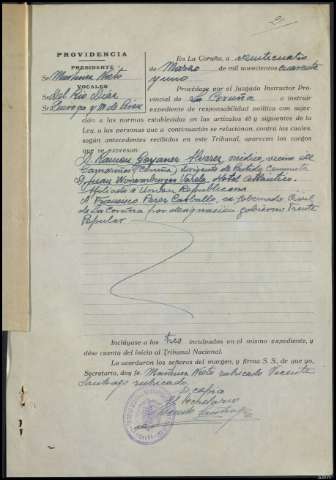 2
PROVIDENCIA
PRESIDENTE
Sr. Martínez Nieto
VOCALES
Sr. Del Río Díaz
Sr.
En La Coruña, a veinticuatro
de Marzo de mil novecientos cuarenta
y uno.
Procédase por el Juzgado Instructor Pro-
vincial de La Coruña a instruir
expediente de responsabilidad política con suje-
ción a las normas establecidas en las artículos 46 y siguientes de la
Ley, a las personas que a continuación se relacionan, contra las cuales,
según antecedentes recibidos en este Tribunal, aparecen los cargos
que se expresan:
D. Ramon Gayanes Alvarez, médico, vecino de
Camariñas (Coruña) dirigente de Partido Comunista
D. Juan Varela, Hotel Atlántico.
Afiliado a Unión Republicana
D. Francisco Perez Carballo, ex gobernador Civil
de La Coruña por designación gobierno Frente
Popular
Inclúyase a los tres inculpados en el mismo expediente, y
dése cuenta del inicio al Tribunal Nacional.
Lo acordaron los señores del margen, y firma S. S. de que yo,
Secretario, doy fe. Martínez Nieto rubricado Vicente
Santiago rubricado
Es copia
El Secretario